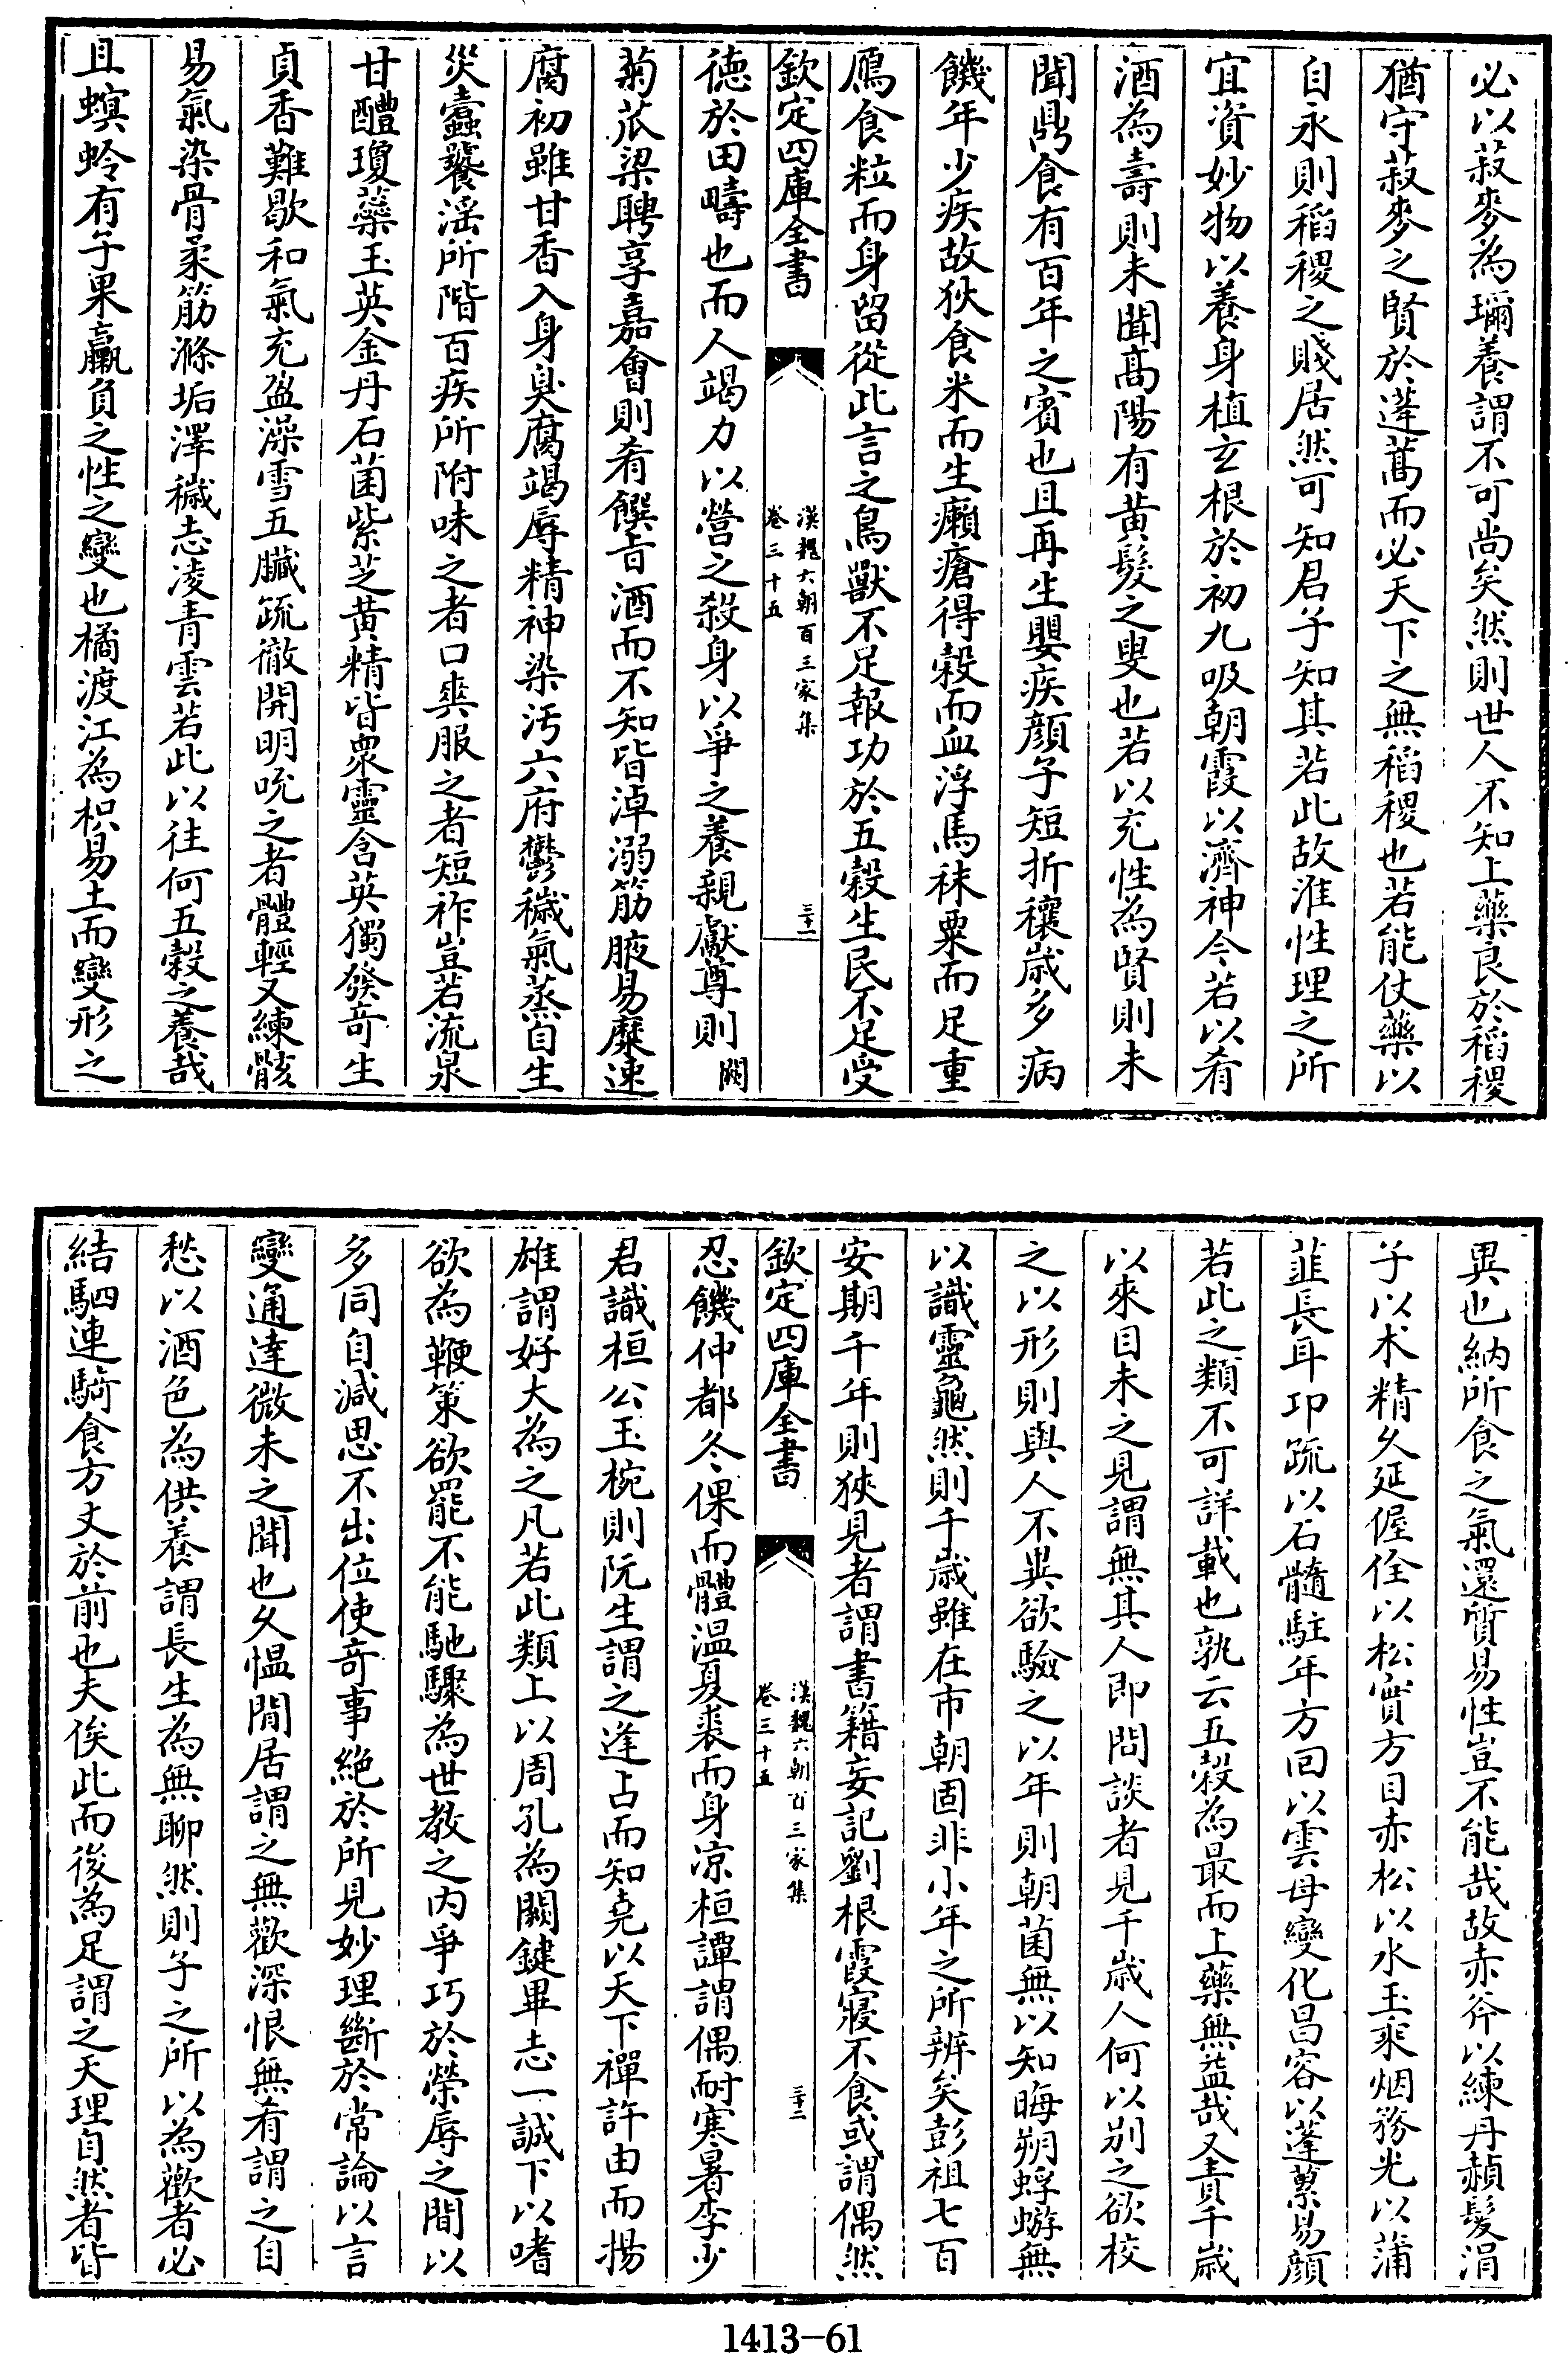 必以菽麥為璊養謂不可尚矣然則世人不知上藥良於稻稷
猶守菽麥之賢於蓬蒿而必天下之無稻稷也若能仗藥以
自永則稻稷之賤居然可知君子知其若此故准性理之所
宜資妙物以養身植玄根於初九吸朝霞以濟神今若以肴
酒為壽則未聞髙陽有黄髮之叟也若以充性為賢則未
聞鼎食有百年之賓也且再生嬰疾顔子短折穰歲多病
饑年少疾故狄食米而生癩瘡得穀而血浮馬秣粟而足重
鴈食粒而身留從此言之鳥獸不足報功於五穀生民不足受
欽定四庫全書
漢魏六朝百三家集
卷三十五
三十一
德於田疇也而人竭力以營之殺身以爭之養親獻尊則闕
菊苽梁聘享嘉會則肴饌旨酒而不知皆淖溺筋腋易糜速
腐初雖甘香入身臭腐竭辱精神染污六府鬱穢氣蒸自生
災蠹饕滛所階百疾所附味之者口爽服之者短祚豈若流泉
甘醴瓊蘂玉英金丹石菌紫芝黄精皆衆靈含英獨發竒生
貞香難歇和氣充盈澡雪五臟疏徹開明吮之者體輕又練骸
易氣染骨柔筋滌垢澤穢志凌青雲若此以往何五穀之養哉
且螟蛉有子果蠃負之性之變也橘渡江為枳易土而變形之
異也納所食之氣還質易性豈不能哉故赤斧以練丹赬髮涓
子以术精久延偓佺以松實方目赤松以水玉乘烟務光以蒲
韮長耳邛疏以石髓駐年方回以雲母變化昌容以蓬蔂易顔
若此之類不可詳載也孰云五穀為最而上藥無益哉又責千歲
以來目未之見謂無其人即問談者見千歲人何以别之欲校
之以形則與人不異欲驗之以年則朝菌無以知晦朔蜉蝣無
以識靈龜然則千歲雖在市朝固非小年之所辨矣彭祖七百
安期千年則狹見者謂書籍妄記劉根霞寢不食或謂偶然
欽定四庫全書
漢魏六朝百三家集
卷三十五
三十二
忍饑仲都冬倮而體温夏裘而身凉桓譚謂偶耐寒暑李少
君識桓公玉椀則阮生謂之逢占而知堯以天下禪許由而揚
雄謂好大為之凡若此類上以周孔為闗鍵畢志一誠下以嗜
欲為鞭策欲罷不能馳驟為世教之内爭巧於榮辱之間以
多同自減思不出位使竒事絶於所見妙理斷於常論以言
變通達微未之聞也久愠閒居謂之無歡深恨無肴謂之自
愁以酒色為供養謂長生為無聊然則子之所以為歡者必
結駟連騎食方丈於前也夫俟此而後為足謂之天理自然者皆
1413—61